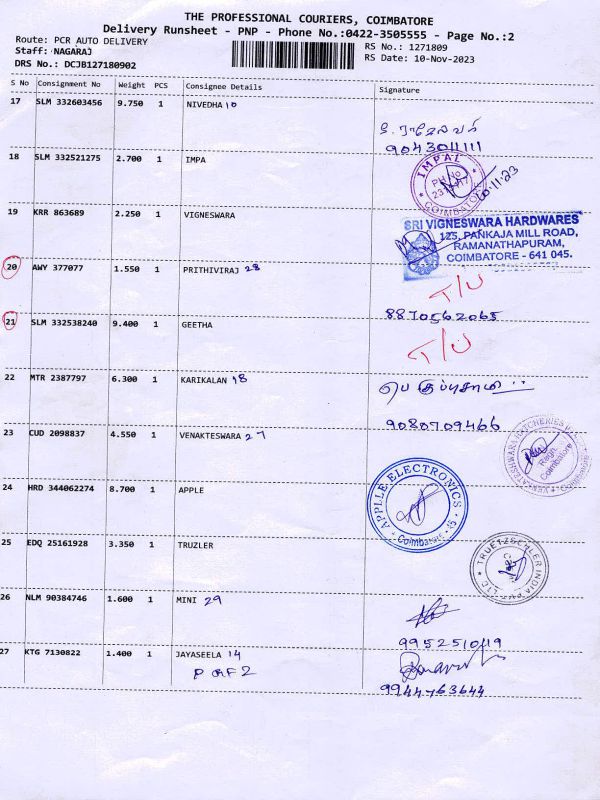 THE PROFESSIONAL COURIERS, COIMBATORE
Delivery Runsheet - PNP - Phone No.:0422-3505555 - Page No.:2
Route: PCR AUTO DELIVERY
RS No.: 1271809
Staff: NAGARAJ
RS Date: 10-Nov-2023
DRS No.: DCJB127180902
S No Consignment No Weight PCS Consignee Details Signature
17 SLM 332603456 9.750 1 NIVEDHA 10
9043011111
18 SLM 332521275 2.700 1 IMPA
IMPAL
PH No
COIMBATORE
10.11.23
19 KRR 863689 2.250 1 VIGNESWARA
SRI VIGNESWARA HARDWARES
125, PANKAJA MILL ROAD,
RAMANATHAPURAM,
COIMBATORE - 641 045.
20 AWY 377077 1.550 1 PRITHIVIRAJ 28
T/U
8870562065
21 SLM 332538240 9.400 1 GEETHA
T/U
22 MTR 2387797 6.300 1 KARIKALAN 18
9080709466
23 CUD 2098837 4.550 1 VENAKTESWARA 27
VENKATESHWARA HATCHERIES
Regn.
Coimbatore
24 HRD 344062274 8.700 1 APPLE
APPLLE ELECTRONICS
Coimbatore 45
25 EDQ 25161928 3.350 1 TRUZLER
TRUETZSCHLER INDIA PVT LLC
26 NLM 90384746 1.600 1 MINI 29
9952510119
27 KTG 7130822 1.400 1 JAYASEELA 14
9944763644